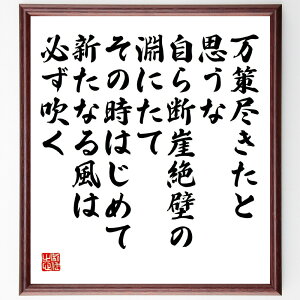 万策尽きたと
思うな
自ら断崖絶壁の
淵にたて
その時はじめて
新たなる風は
必ず吹く